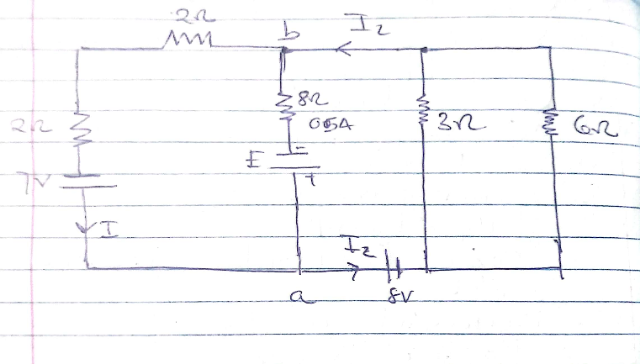 2Ω
b
I2
2Ω
8Ω
0.5A
3Ω
6Ω
E
-
+
7V
I
I2
a
8V